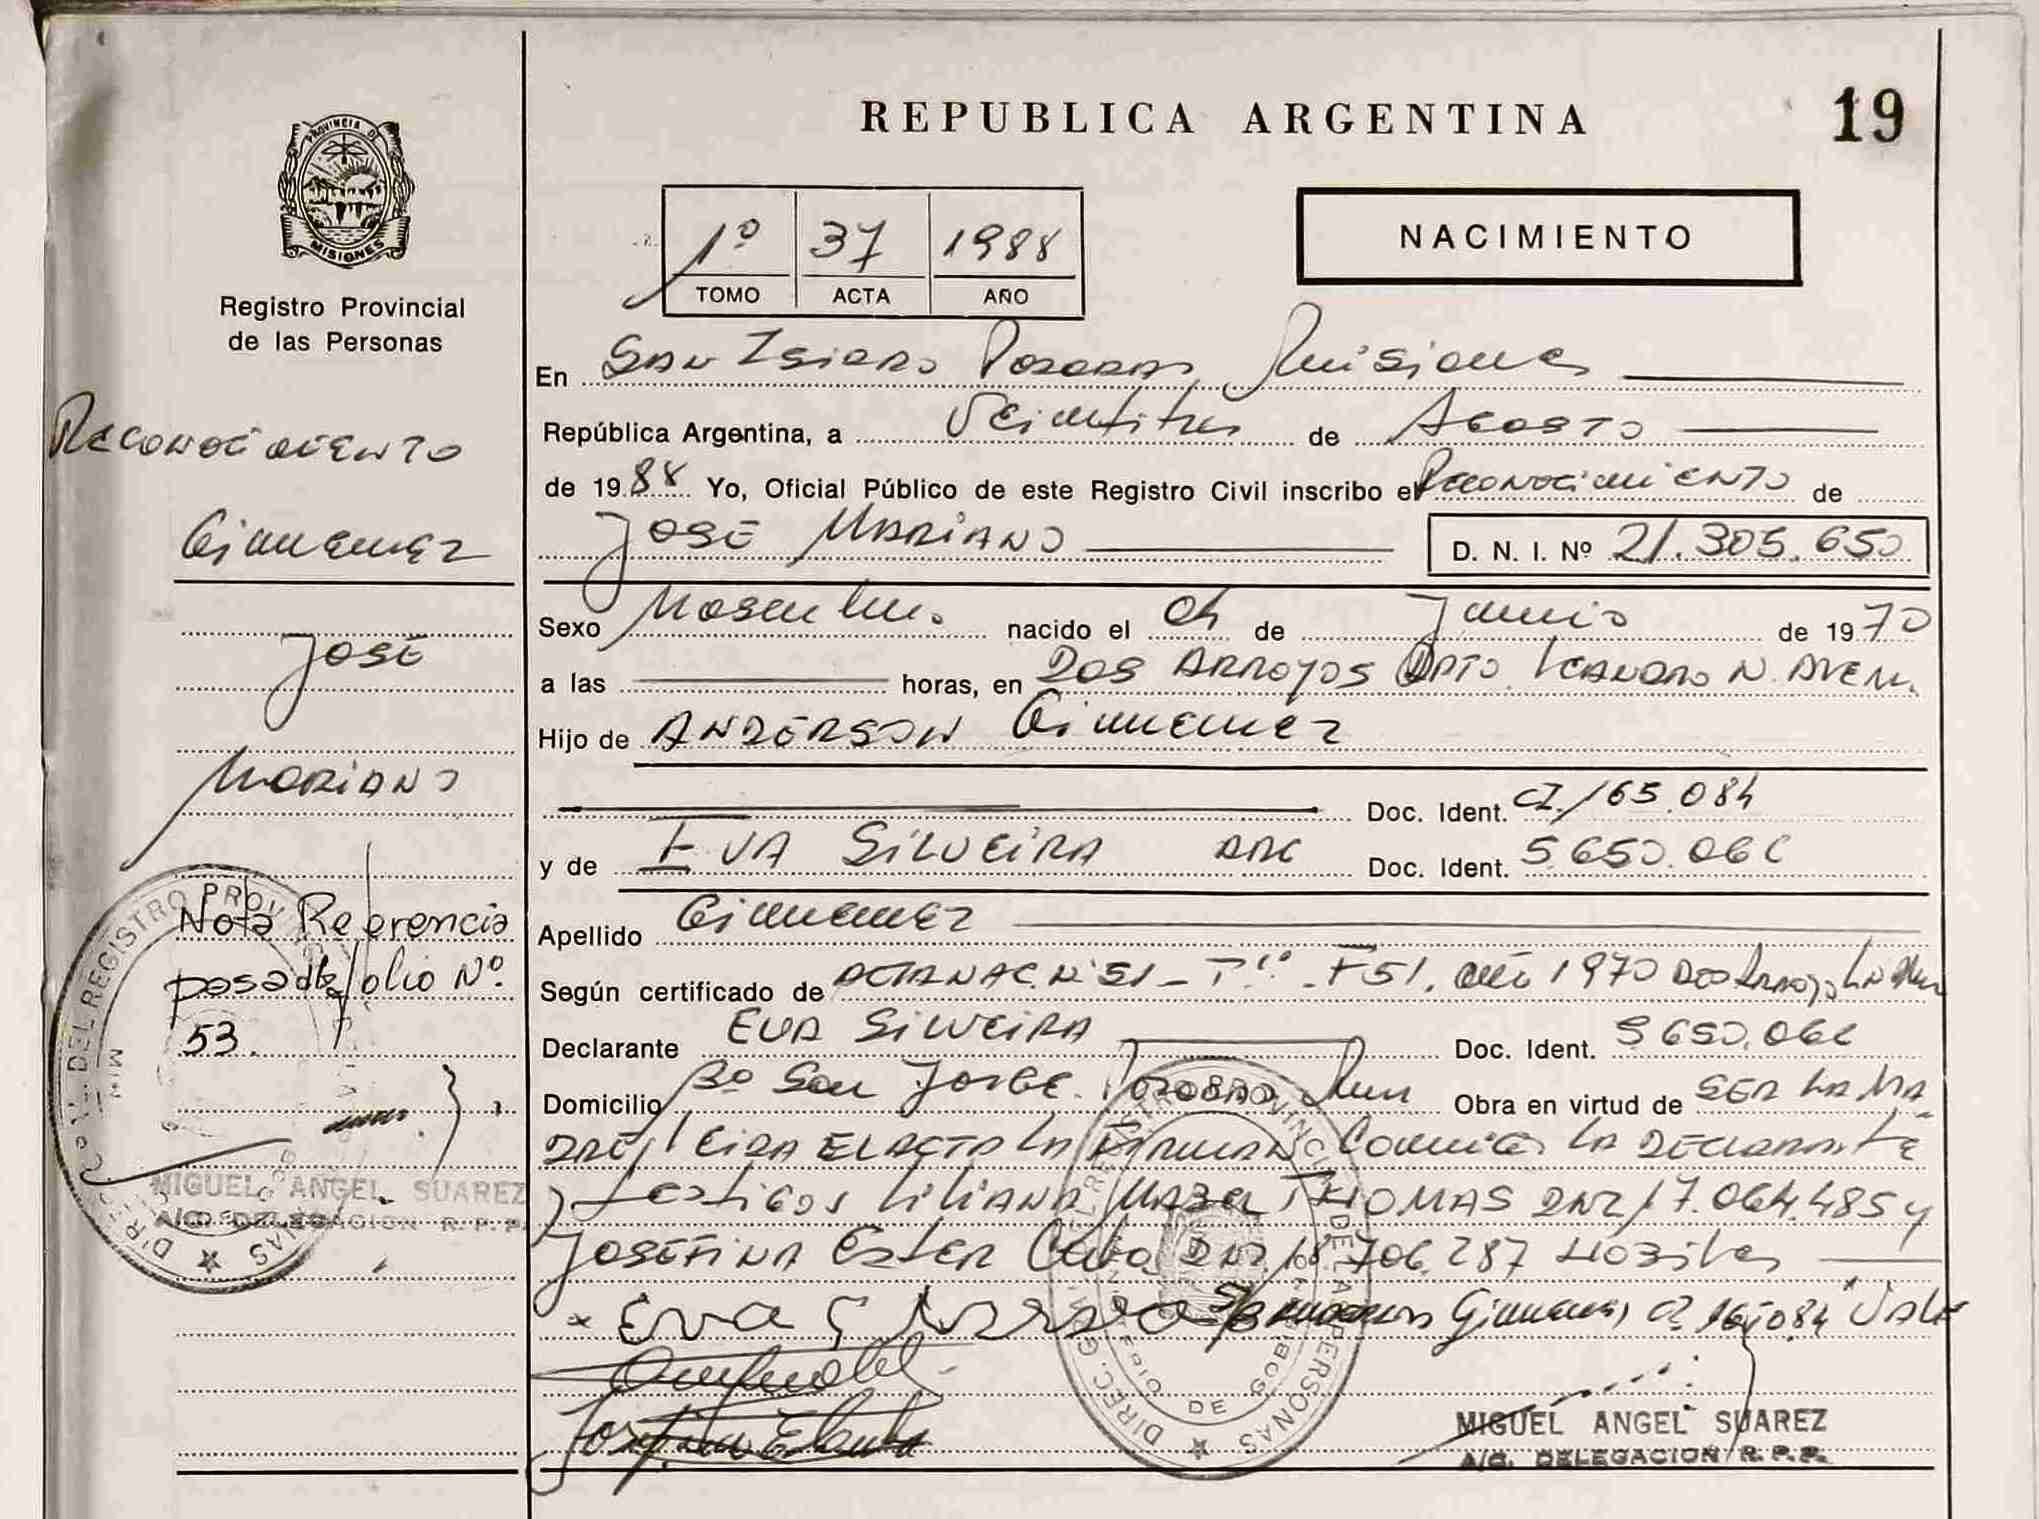 REPUBLICA ARGENTINA
19
PROVINCIA DE
MISIONES
Registro Provincial
de las Personas
1º 37 1988
TOMO ACTA AÑO
NACIMIENTO
En San Isidro Posadas Misiones
República Argentina, a Veintitres de Agosto
de 1988 Yo, Oficial Público de este Registro Civil inscribo el Reconocimiento de
JOSE MARIANO D. N. I. Nº 21.305.650
Sexo Masculino. nacido el 04 de Junio de 1970
a las horas, en DOS ARROYOS DPTO. LEANDRO N. ALEM.
Hijo de ANDERSON Gimenez
Doc. Ident. CI. 165.084
y de EVA SILVEIRA ARG Doc. Ident. 5.650.066
Apellido Gimenez
Según certificado de ACTA NAC. Nº 51 - Tº 1º - F 51. Año 1970 Dos Arroyos
Declarante EVA SILVEIRA Doc. Ident. 5.650.066
Domicilio Bº San Jorge. Posadas Obra en virtud de SER LA MA
DRE, LEIDA EL ACTA LA FIRMAN Conmigo LA DECLARANTE
y testigos LILIANA Mabel THOMAS DNI 17.064.485 y
JOSEFINA Ester DNI. 18.706.287 Hábiles
x Eva S/b Anderson Gimenez CI. 165.084 "VALE
MIGUEL ANGEL SUAREZ
A/C. DELEGACION R. P. P.
Reconocimiento
Gimenez
JOSE
MARIANO
Nota Referencia
pasada folio Nº
53.
MIGUEL ANGEL SUAREZ
A/C. DELEGACION R. P. P.
DIREC. GRAL. DEL REGISTRO PROVINCIAL DE LAS PERSONAS
MINISTERIO DE GOBIERNO